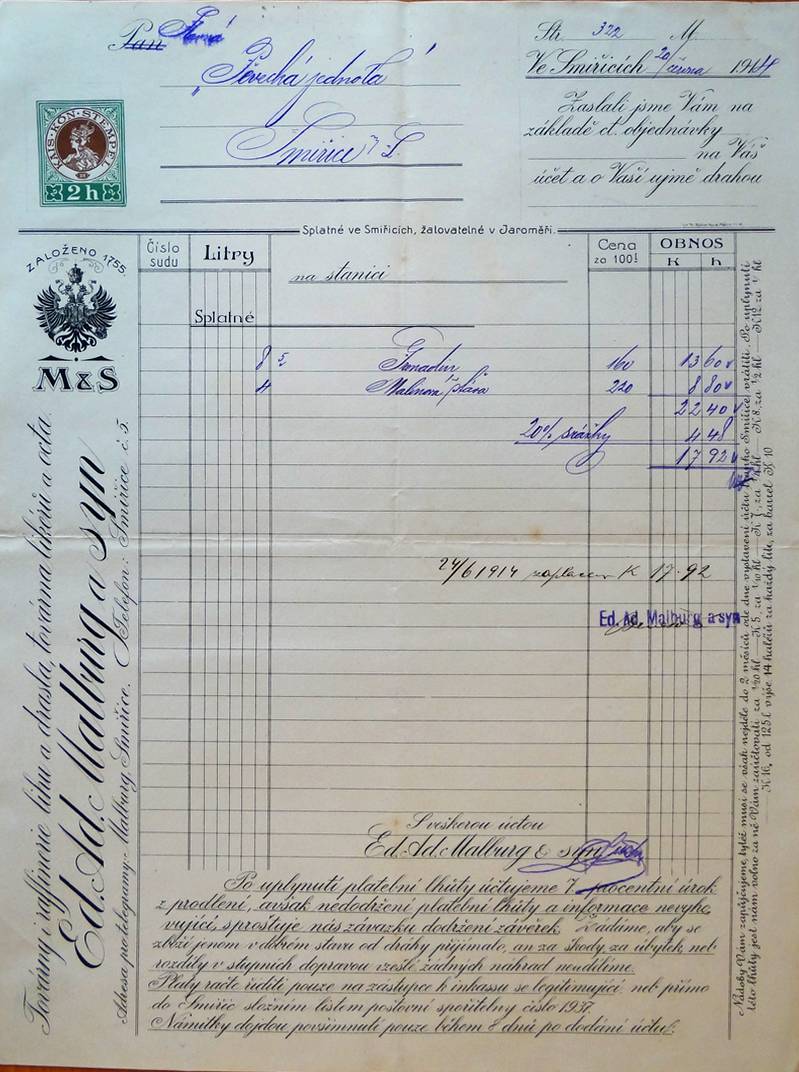 Pan Slavná
Str. 322 M
„Pěvecká jednota"
Ve Smiřicích, 20/června 1914
Smiřice n. L.
Zaslali jsme Vám na
základě ct. objednávky
na Váš
účet a o Vaší ujmě drahou
KAIS·KÖN·STEMPEL
2 h
Splatné ve Smiřicích, žalovatelné v Jaroměři.
ZALOŽENO 1755.
M & S
Číslo sudu
Litry
Cena za 100 l
OBNOS
K h
na stanici
Splatné
8 Grenadin 160 13 60
4 Malinová šťáva 220 8 80
22 40
20% srážky 4 48
17 92
24/6 1914 zaplaceno K 17·92
Ed. Ad. Malburg a syn
S veškerou úctou
Ed. Ad. Malburg & syn
Po uplynutí platební lhůty účtujeme 7 procentní úrok
z prodlení, avšak nedodržení platební lhůty a informace nevyho-
vující, sprostuje nás závazku dodržení závěrek. Žádáme, aby se
zboží jenom v dobrém stavu od dráhy přijímalo, an za škody, za úbytek, neb
rozdíly v stupních dopravou vzešlé žádných náhrad nedílíme.
Platy račte říditi pouze na zástupce k inkassu se legitimující neb přímo
do Smiřic složním listem poštovní spořitelny číslo 1937.
Námitky dojdou povšimnutí pouze během 8 dnů po dodání účtu.
Továrny i raffinerie lihu a drasla, továrna likérů a octa.
Ed. Ad. Malburg a syn
Adresa pro telegramy: Malburg, Smiřice. Telefon: Smiřice č. 5.
Nádoby Vám zapůjčujeme, tytéž musí se však nejdéle do 2 měsíců ode dne vystavení účtu franko Smiřice vrátiti. Po uplynutí
této lhůty jest nám volno za ně Vám zaúčtovati za 1/20 hl — K 5, za 1/10 hl — K 7, za 1/4 hl — K 8, za 1/2 hl — K 12 za 1 hl
K 16, od 125 l výše 14 haléřů za každý litr, za barel K 10